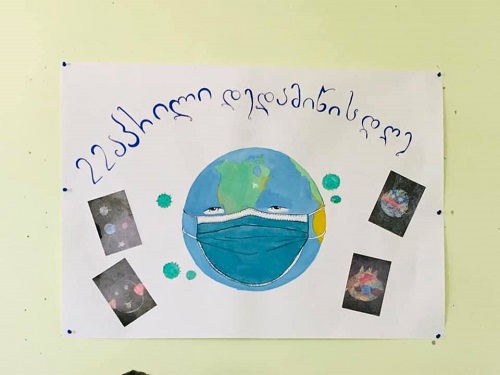 22 აპრილი დედამიწის დღე